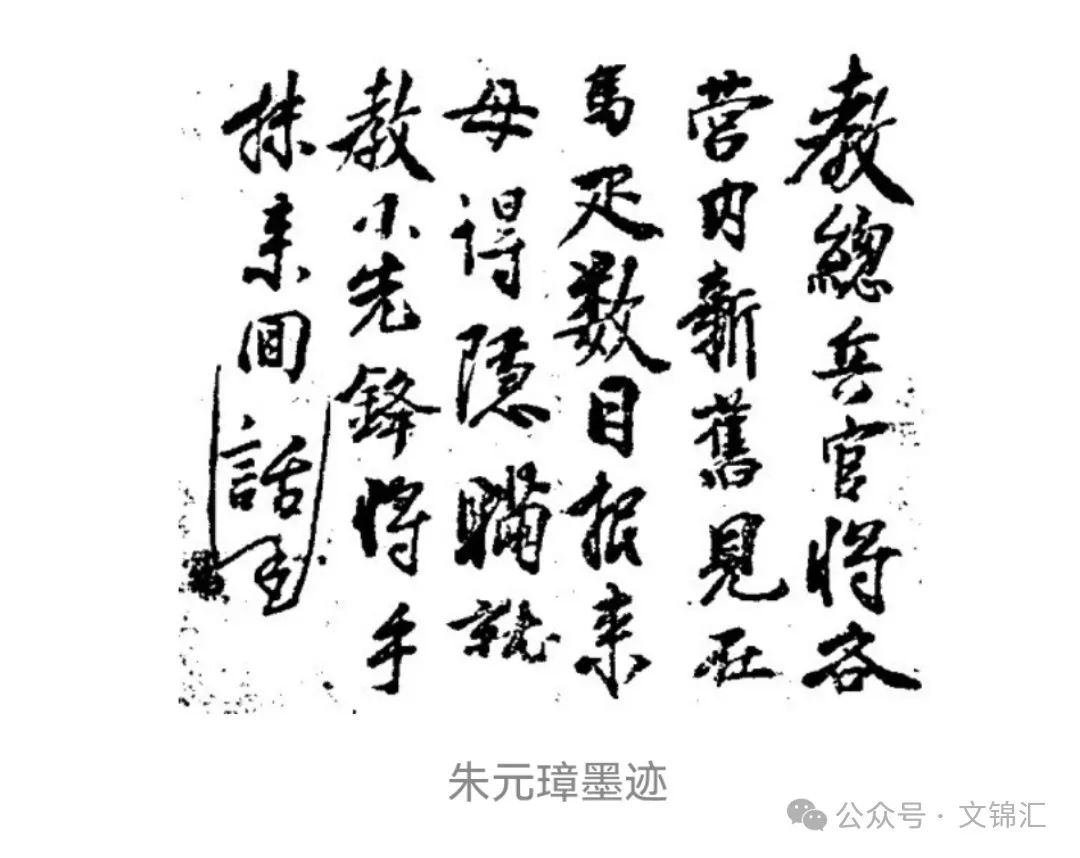 教總兵官将各
营内新舊見在
馬疋数目报来
毋得隱瞞就
教小先鋒将手
抹来回話
朱元璋墨迹
公众号·文锦汇